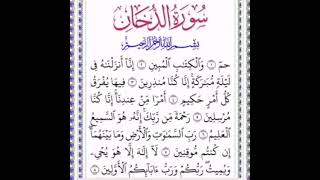 سُورَةُ الدُّخَانِ
بِسْمِ اللَّهِ الرَّحْمَٰنِ الرَّحِيمِ
حمٓ ۝١ وَٱلْكِتَٰبِ ٱلْمُبِينِ ۝٢ إِنَّآ أَنزَلْنَٰهُ فِى
لَيْلَةٍ مُّبَٰرَكَةٍ إِنَّا كُنَّا مُنذِرِينَ ۝٣ فِيهَا يُفْرَقُ
كُلُّ أَمْرٍ حَكِيمٍ ۝٤ أَمْرًا مِّنْ عِندِنَآ إِنَّا كُنَّا
مُرْسِلِينَ ۝٥ رَحْمَةً مِّن رَّبِّكَ إِنَّهُۥ هُوَ ٱلسَّمِيعُ
ٱلْعَلِيمُ ۝٦ رَبِّ ٱلسَّمَٰوَٰتِ وَٱلْأَرْضِ وَمَا بَيْنَهُمَآ
إِن كُنتُم مُّوقِنِينَ ۝٧ لَآ إِلَٰهَ إِلَّا هُوَ يُحْىِۦ
وَيُمِيتُ رَبُّكُمْ وَرَبُّ ءَابَآئِكُمُ ٱلْأَوَّلِينَ ۝٨